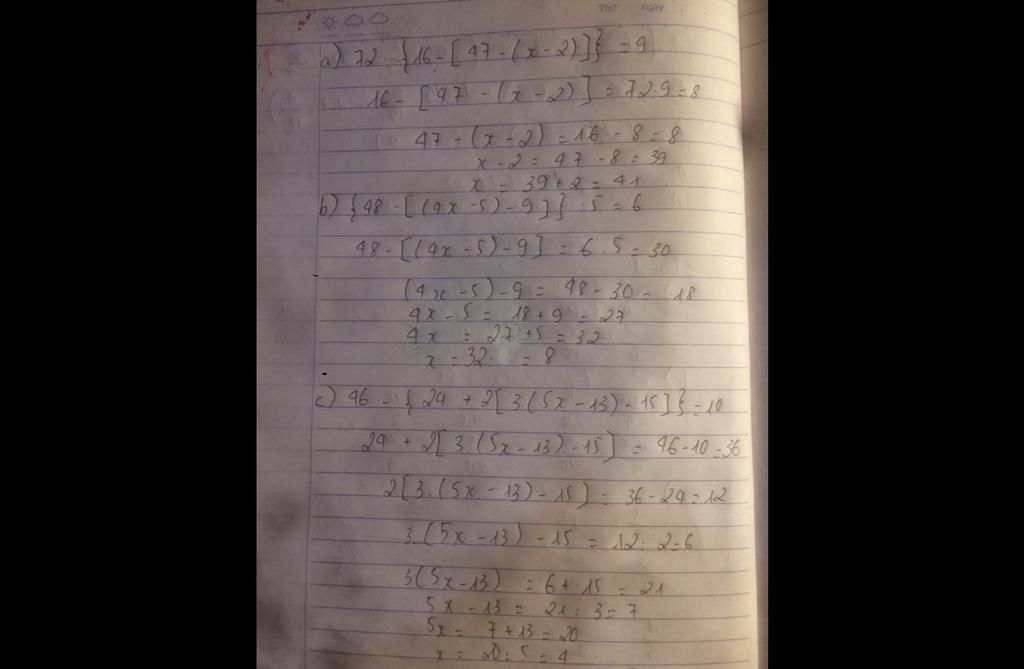 Thứ ngày
a) 72 : {16 - [47 - (x - 2)]} = 9
16 - [47 - (x - 2)] = 72 : 9 = 8
47 - (x - 2) = 16 - 8 = 8
x - 2 = 47 - 8 = 39
x = 39 + 2 = 41
b) {48 - [(4x - 5) - 9]} : 5 = 6
48 - [(4x - 5) - 9] = 6 . 5 = 30
(4x - 5) - 9 = 48 - 30 = 18
4x - 5 = 18 + 9 = 27
4x = 27 + 5 = 32
x = 32 : = 8
c) 46 - {24 + 2[3(5x - 13) - 15]} = 10
24 + 2[3.(5x - 13) - 15] = 46 - 10 = 36
2[3.(5x - 13) - 15] = 36 - 24 = 12
3.(5x - 13) - 15 = 12 : 2 = 6
3(5x - 13) = 6 + 15 = 21
5x - 13 = 21 : 3 = 7
5x = 7 + 13 = 20
x = 20 : 5 = 4